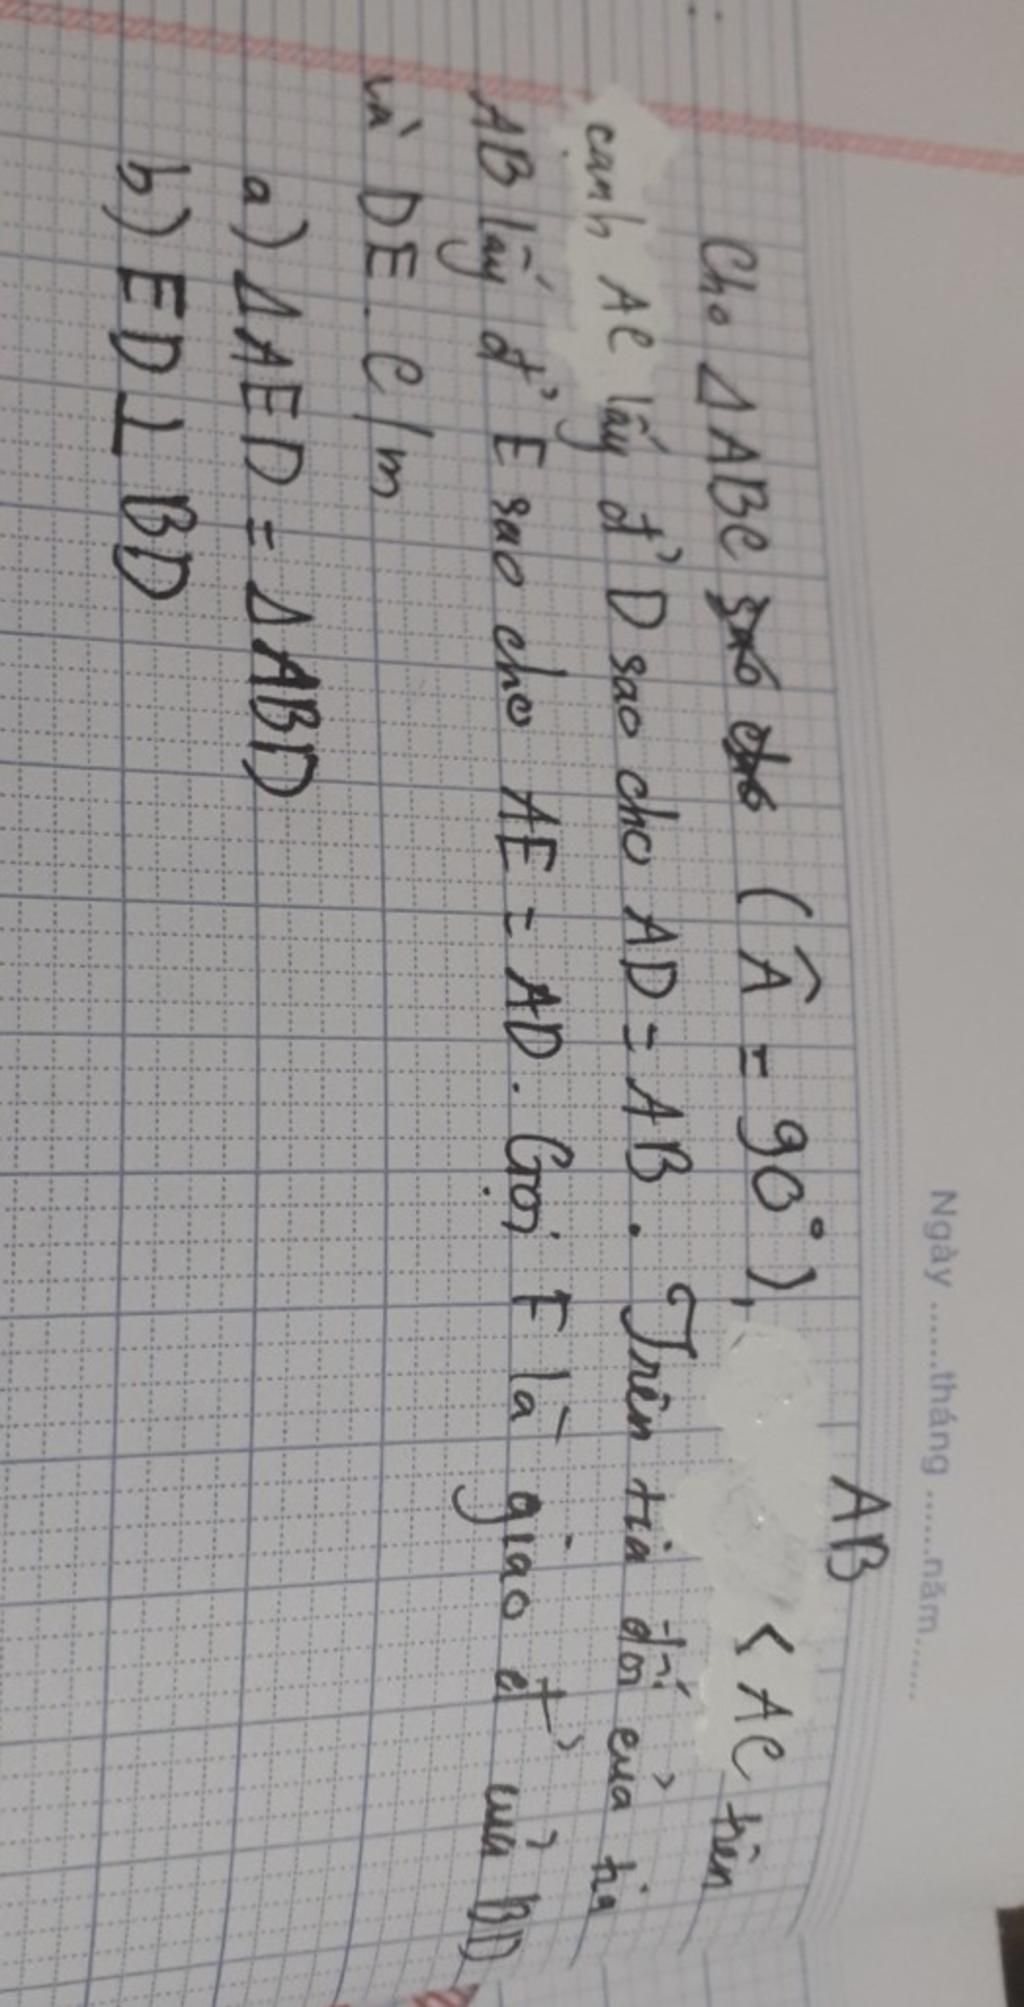 Ngày ......tháng ......năm......
AB
Cho Δ ABC (Â = 90°), < AC trên
cạnh AC lấy đ' D sao cho AD = AB. Trên tia đối của tia
AB lấy đ' E sao cho AE = AD. Gọi F là giao đ' của BD
và DE. C/m
a) Δ AED = Δ ABD
b) ED ⊥ BD